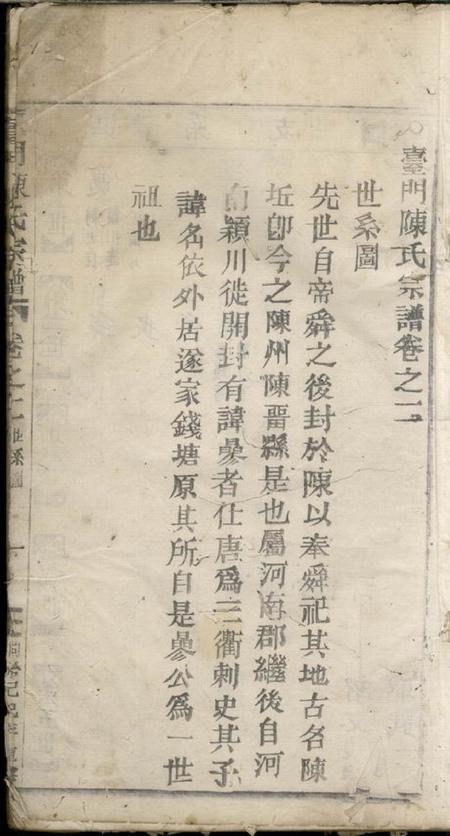 臺門陳氏宗譜卷之二
世系圖
先世自帝舜之後封於陳以奉舜祀其地古名陳
坵卽今之陳州陳畱縣是也屬河南郡繼後自河
南潁川徙開封有諱彖者仕唐爲三衢刺史其子
諱名依外居遂家錢塘原其所自是彖公爲一世
祖也
臺門陳氏宗譜 卷之二 世系圖 一